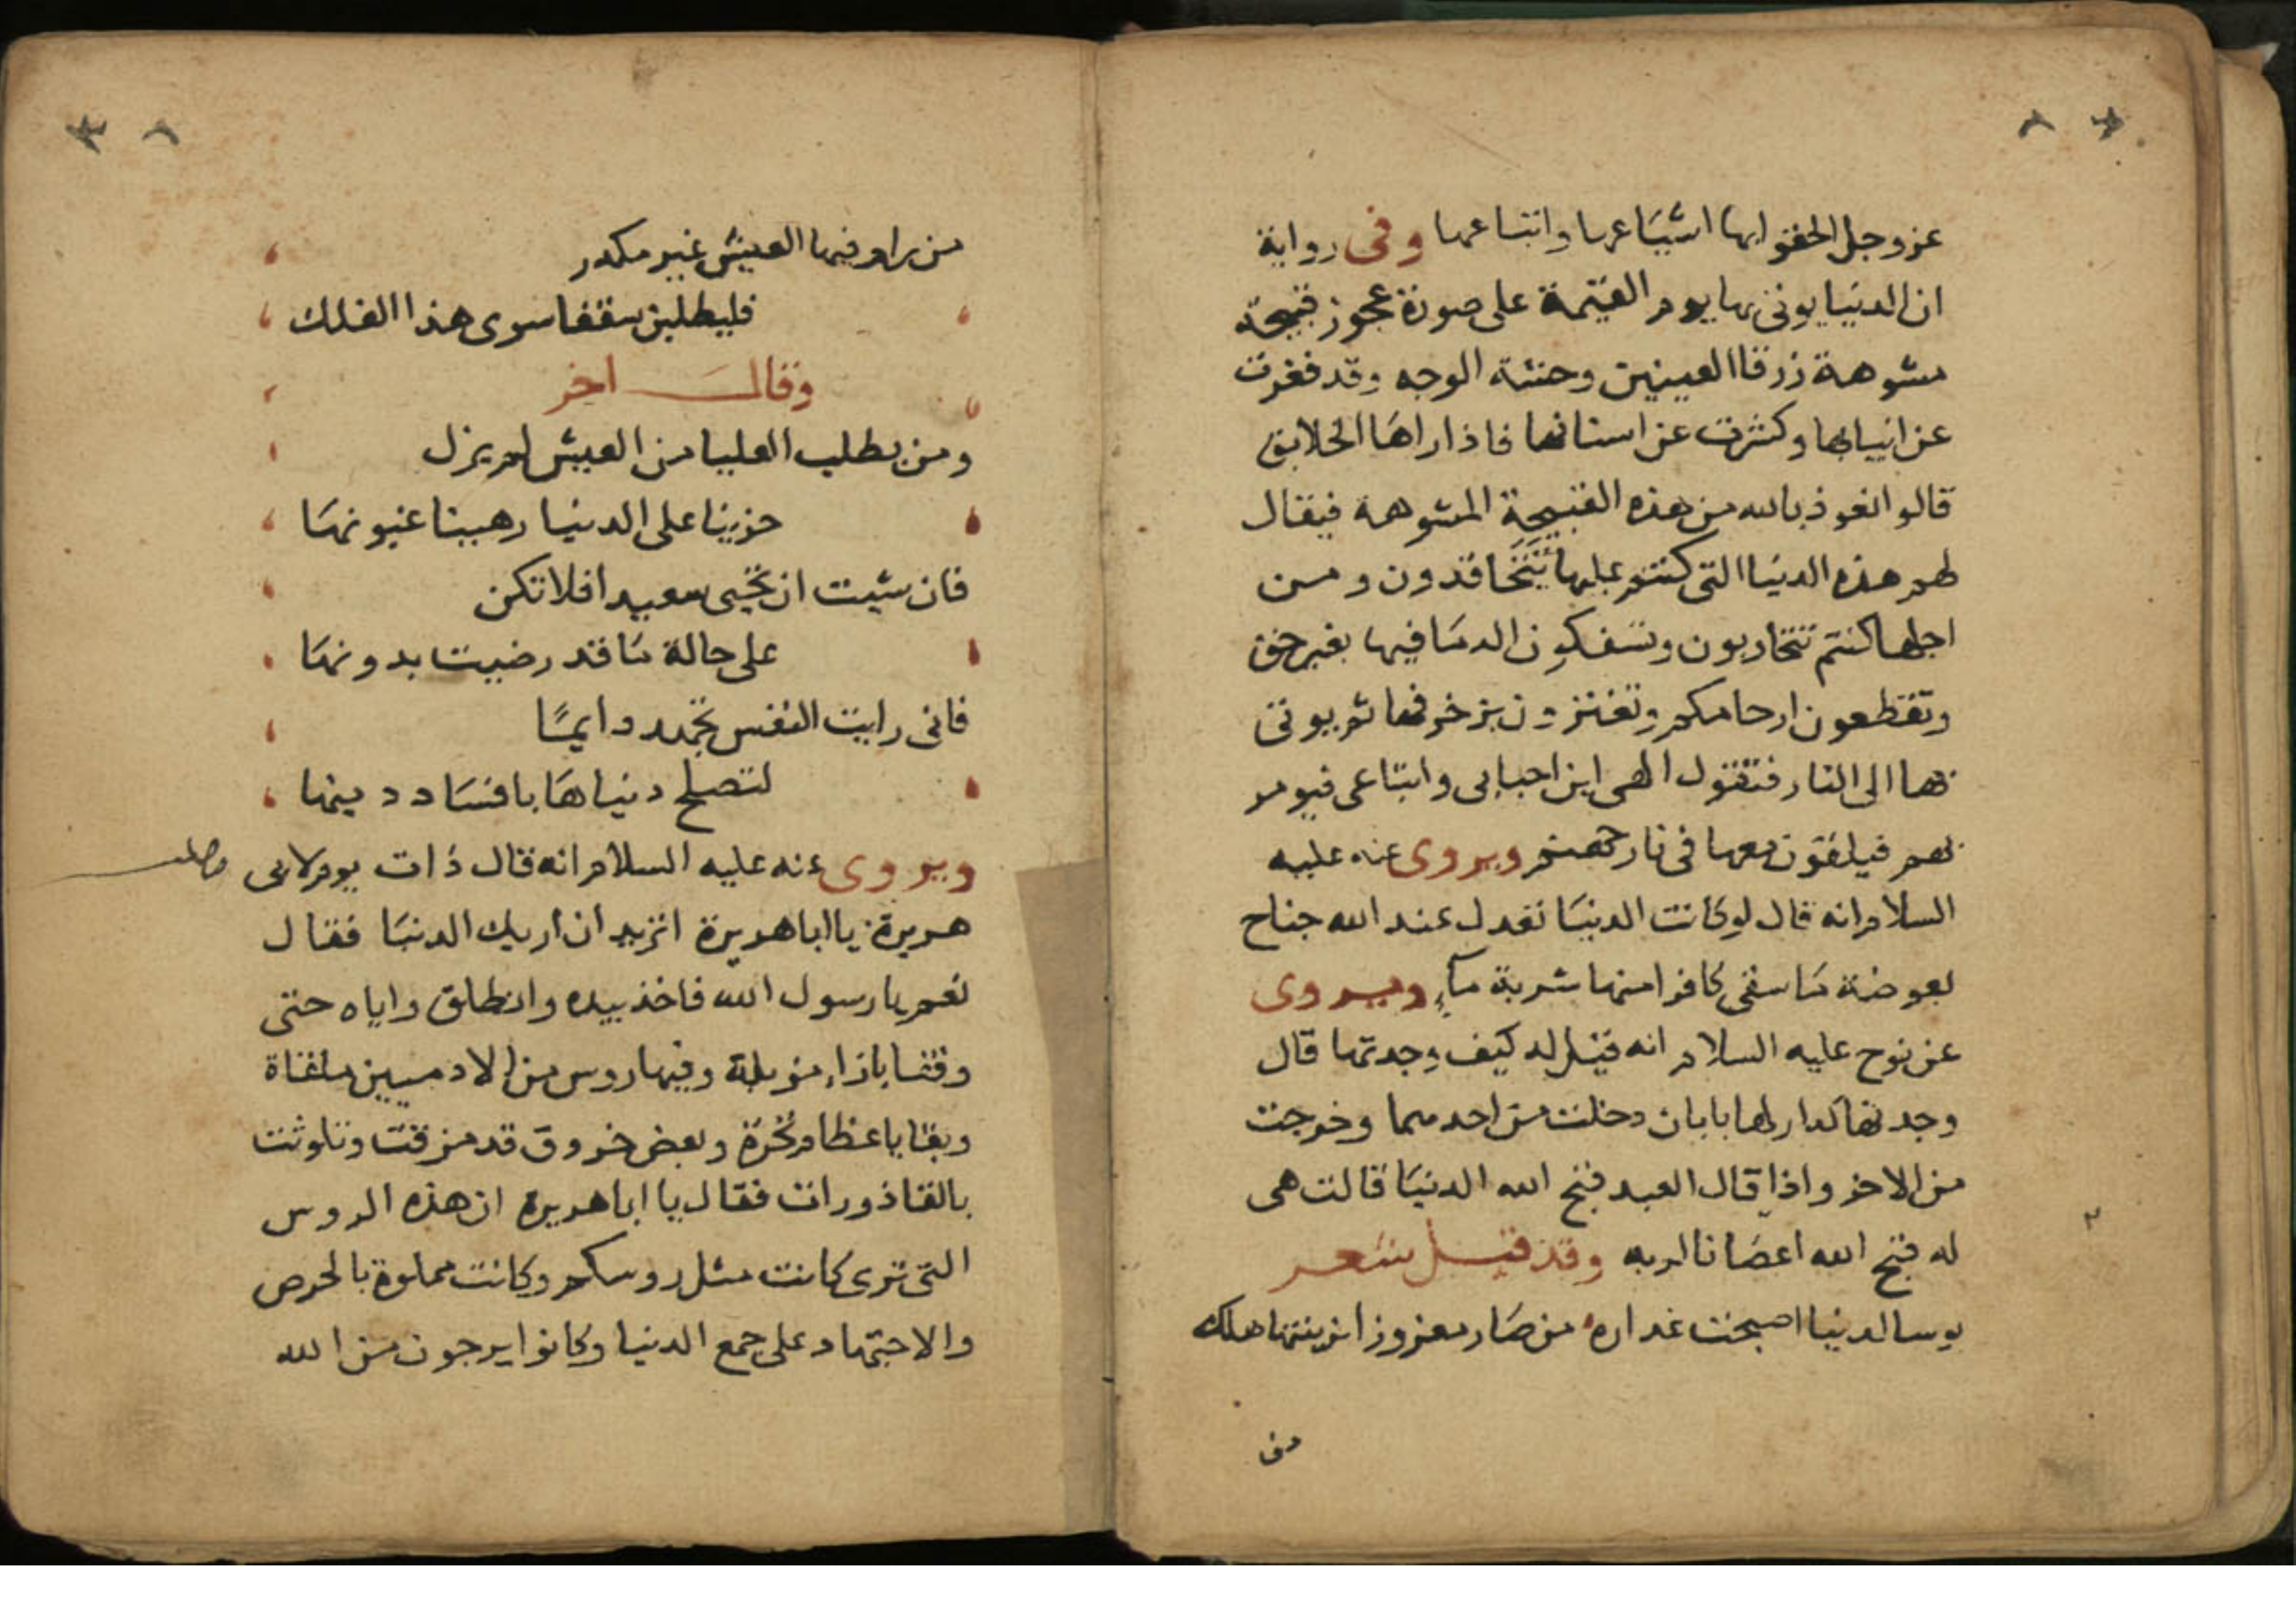 عز وجل الحقوا بها اشياعها واتباعها وفي رواية
ان الدنيا يوتى بها يوم القيمة على صورة عجوز قبيحة
مشوهة زرقا العينين وحشة الوجه وقد فغرت
عن انيابها وكشرت عن اسنانها فاذا راها الخلايق
قالوا نعوذ بالله من هذه القبيحة المشوهة فيقال
لهم هذه الدنيا التي كنتم عليها تتحاقدون ومن
اجلها كنتم تتحاربون وتسفكون الدما فيها بغير حق
وتقطعون ارحامكم وتغترون بزخرفها ثم يوتى
بها الى النار فتقول الهي اين احبابي واتباعي فيومر
بهم فيلقون معها في نار جهنم ويروى عنه عليه
السلام انه قال لو كانت الدنيا تعدل عند الله جناح
بعوضة ما سقى كافرا منها شربة مآء ويروى
عن نوح عليه السلام انه قيل له كيف وجدتها قال
وجدتها كدار لها بابان دخلت من احدهما وخرجت
من الاخر واذا قال العبد قبح الله الدنيا قالت هي
له قبح الله اعصانا لربه وقد قيل شعر
بوسا لدنيا اصبحت غداره من صار مغرورا بزينتها هلك
من
من يراد فيها العيش غير مكدر
فليطلبن سقفا سوى هذا الفلك
وقال اخر
ومن يطلب العليا من العيش لم يزل
حزينا على الدنيا رهينا غبونها
فان شيت ان تحيى سعيدا فلا تكن
على حالة ما قد رضيت بدونها
فاني رايت النفس تجهد دايما
لتصلح دنياها بافساد دينها
ويروى عنه عليه السلام انه قال ذات يوم لابي
هريرة يا ابا هريرة اتريد ان اريك الدنيا فقال
نعم يا رسول الله فاخذ بيده وانطلق واياه حتى
وقفا بازاء مزبلة وفيها روس من الادميين ملقاة
وبقايا عظام نخرة وبعض خروق قد مزقت وتلوثت
بالقاذورات فقال يا ابا هريرة ان هذه الروس
التي ترى كانت مثل روسكم وكانت مملوة بالحرص
والاجتهاد على جمع الدنيا وكانوا يرجون من الله